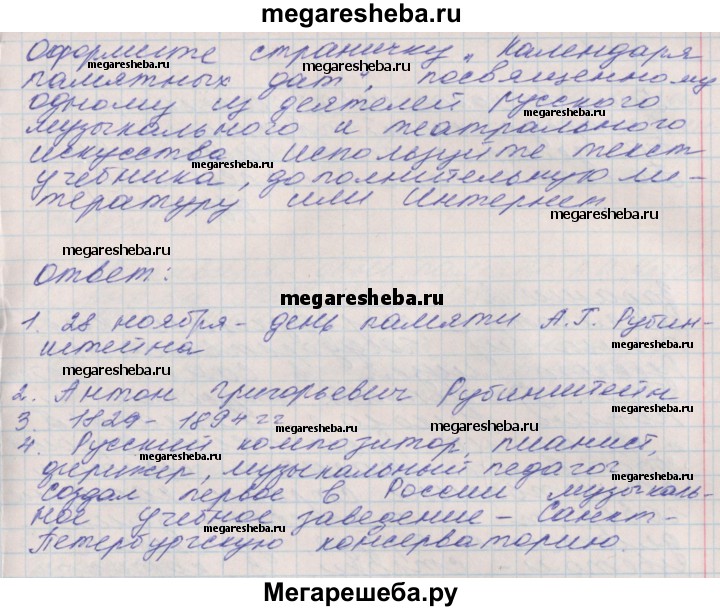 megaresheba.ru
Оформите страничку „Календаря
megaresheba.ru megaresheba.ru
памятных дат", посвященному
одному из деятелей русского
megaresheba.ru
музыкального и театрального
искусства. Используйте текст
megaresheba.ru
учебника, дополнительную ли-
тературу или Интернет
megaresheba.ru
megaresheba.ru
ответ:
megaresheba.ru
1. 28 ноября - день памяти А.Г. Рубин-
штейна
megaresheba.ru
2. Антон Григорьевич Рубинштейн
3. 1829 - 1894 гг
megaresheba.ru
4. Русский композитор, пианист,
megaresheba.ru
дирижер, музыкальный педагог
создал первое в России музыкаль-
ное учебное заведение - Санкт-
megaresheba.ru
Петербургскую консерваторию.
Мегарешеба.ру